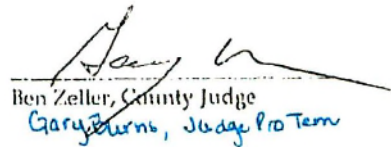 Ben Zeller, County Judge
Gary Burns, Judge Pro Tem